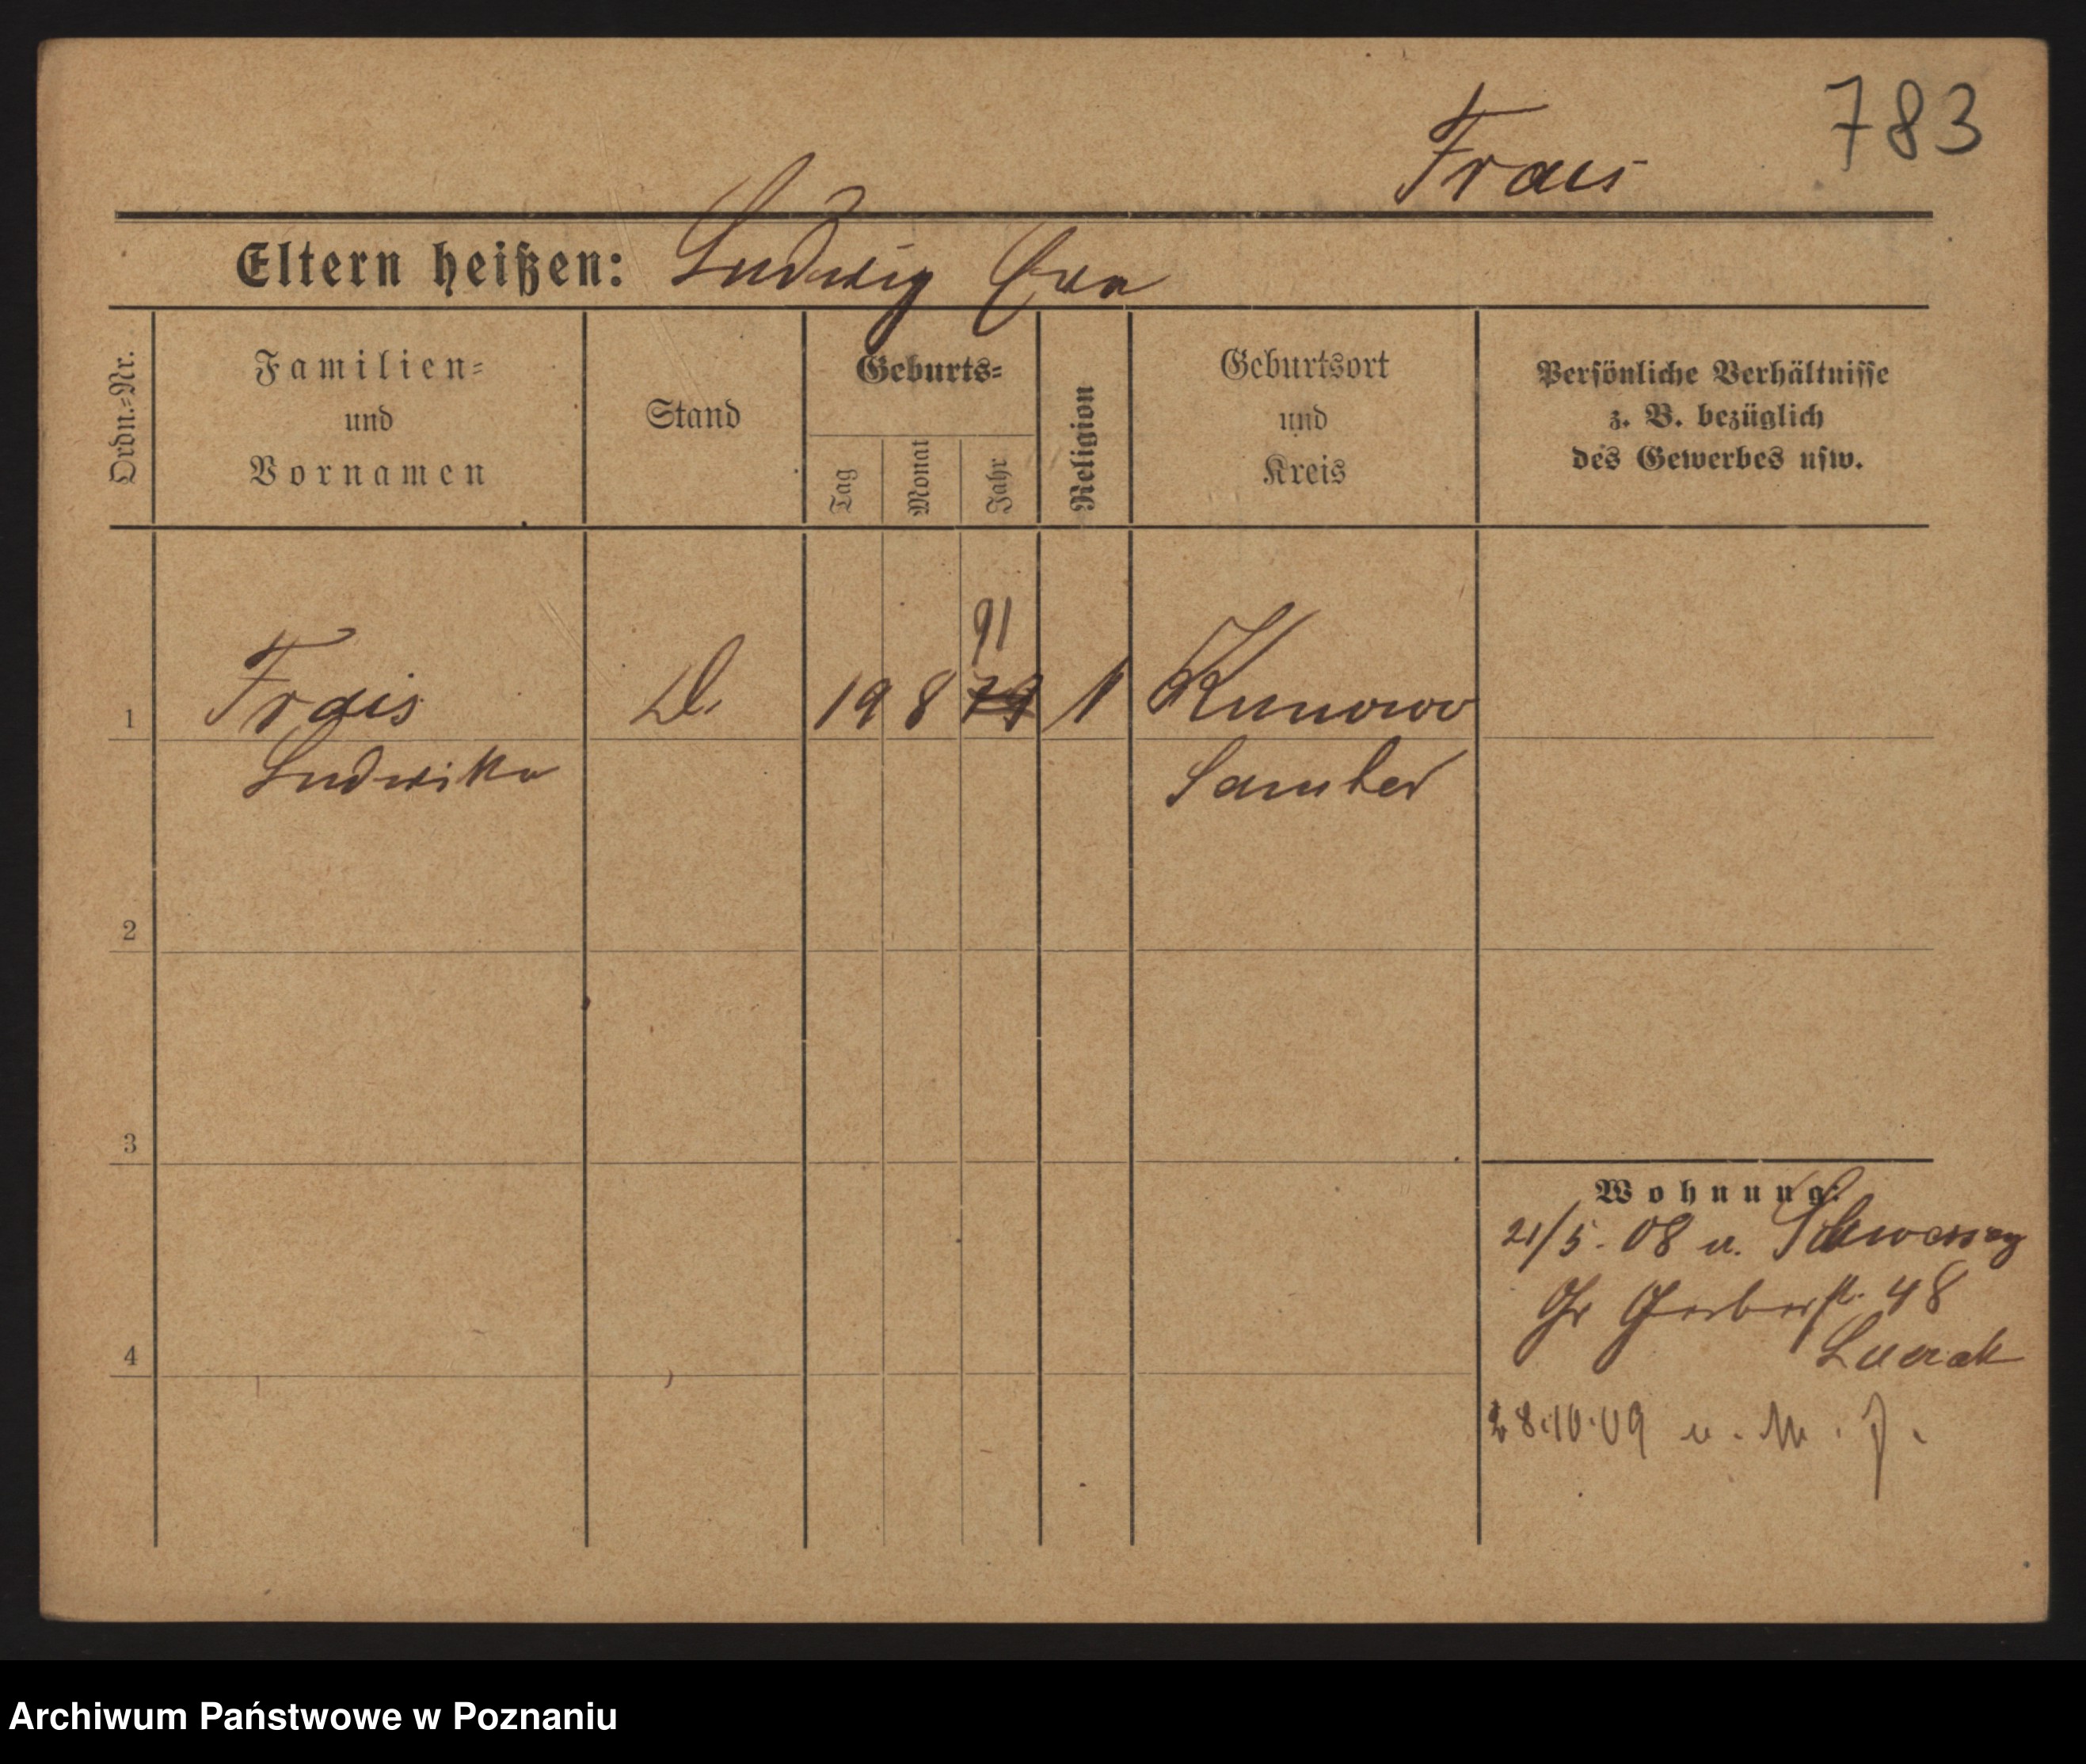 783
Frais
Eltern heißen: Ludwig Eva
Ordn.-Nr.
Familien- und Vornamen
Stand
Geburts-
Tag
Monat
Jahr
Religion
Geburtsort und Kreis
Persönliche Verhältnisse z. B. bezüglich des Gewerbes usw.
91
1 Frais D. 19 8 79 Kunowo
Ludwika Samter
2
3
4
Wohnung:
21/5. 08 v.
Gr Gerberst. 48
28.10.09 v. M.
Archiwum Państwowe w Poznaniu